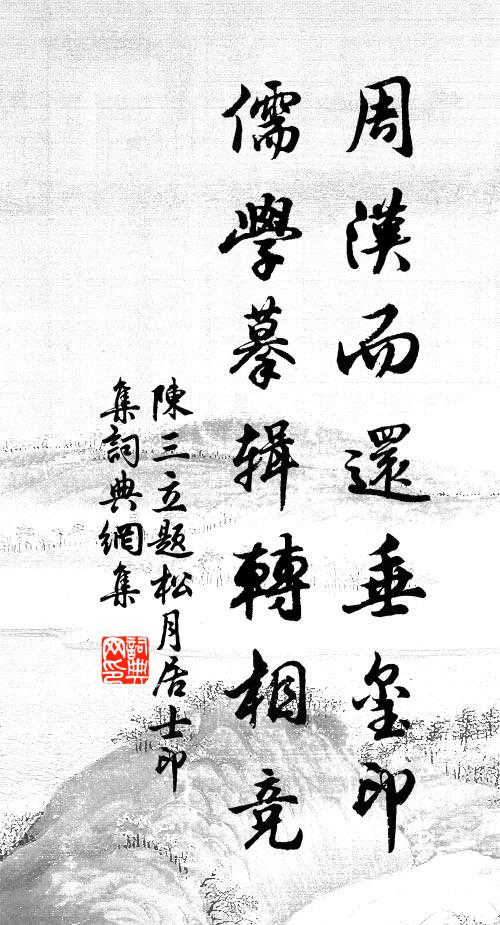 周漢而還垂璽印
儒學摹輯轉相競
陳三立題松月居士印
集詞典網集
詞典網印